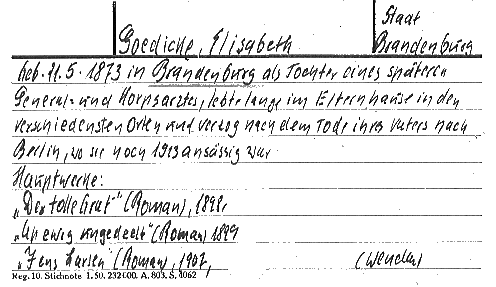 Staat
Goedicke, Elisabeth Brandenburg
Geb. 11.5.1873 in Brandenburg als Tochter eines späteren
General- und Korpsarztes, lebte lange im Elternhause in den
verschiedensten Orten und verzog nach dem Tode ihres Vaters nach
Berlin, wo sie noch 1913 ansässig war
Hauptwerke:
„Der tolle Graf" (Roman), 1898,
„Up ewig ungedeelt" (Roman) 1899
„Jens Larsen" (Roman), 1907, (Wenden)
Reg. 10. Stichnote 1. 50. 232 000. A. 803. S. 4062